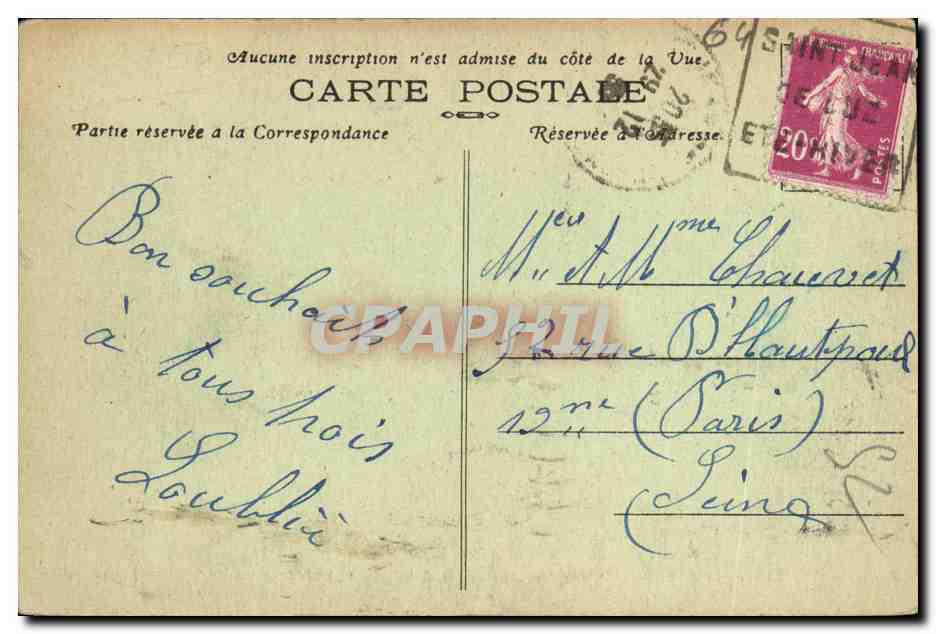 Aucune inscription n'est admise du côté de la Vue
CARTE POSTALE
Partie réservée a la Correspondance
Réservée à l'Adresse
64
SAINT JEAN
DE LUZ
ETE HIVER
20c
POSTES
Bon souhaits
à tous trois
Mr et Mme Chauvet
52 rue D'Hautpoul
19me (Paris)
(Seine)
CPAPHIL